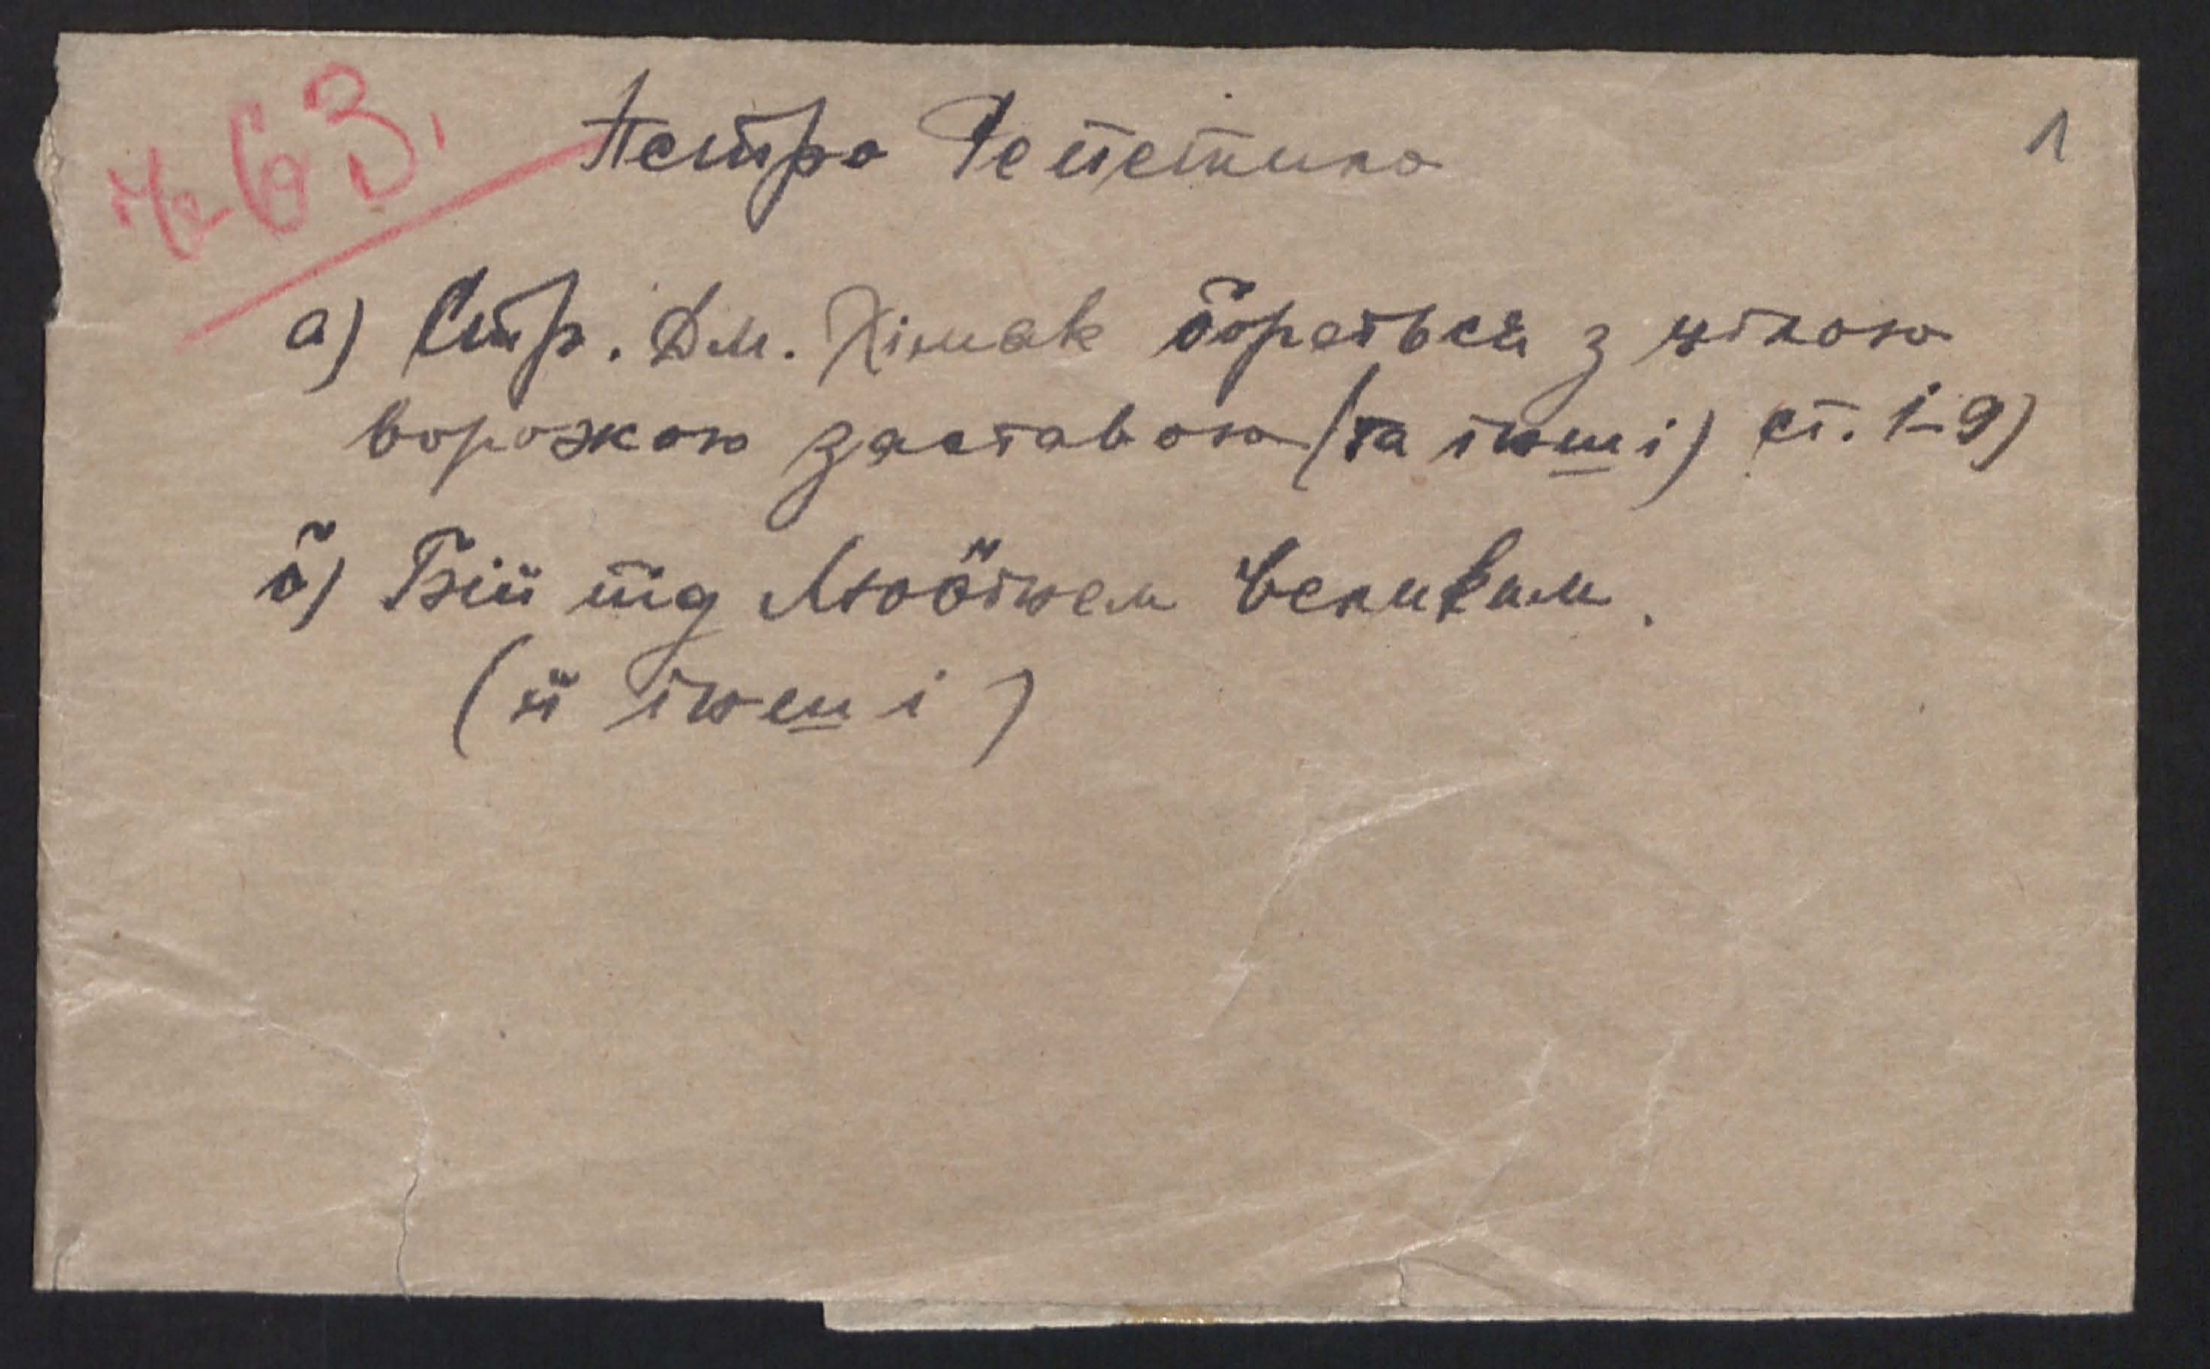 № 63.
Петро Репетило
1
а) Стр. Дм. Хімяк бореться з цілою
ворожою заставою (та інші) ст. 1-9)
б) Бій під Любінем Великим.
(й інші)